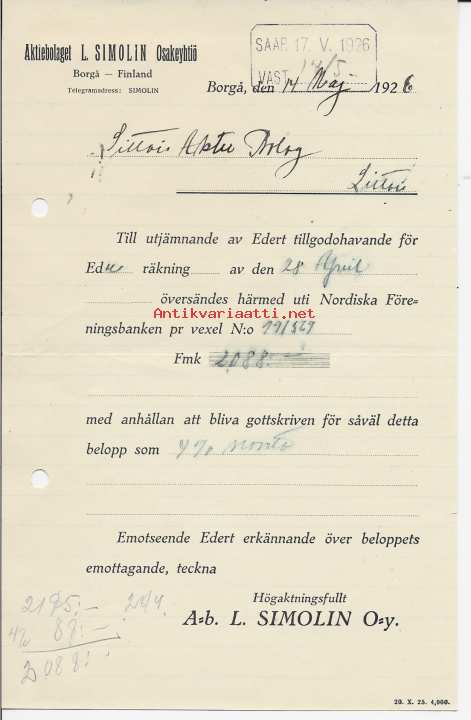 Aktiebolaget L. SIMOLIN Osakeyhtiö
Borgå — Finland
Telegramadress: SIMOLIN
SAAP. 17. V. 1926
VAST. 17/5
Borgå, den 14 Maj 1926
Littois Aktie Bolag
Littois
Till utjämnande av Edert tillgodohavande för
Ed räkning av den 28 April
översändes härmed uti Nordiska Före=
Antikvariaatti.net
ningsbanken pr vexel N:o 19/569
Fmk 2,088:—
med anhållan att bliva gottskriven för såväl detta
belopp som 4%
Emotseende Edert erkännande över beloppets
emottagande, teckna
Högaktningsfullt
A=b. L. SIMOLIN O=y.
2175:—
4% 87:—
2088:—
20. X. 25. 4,000.